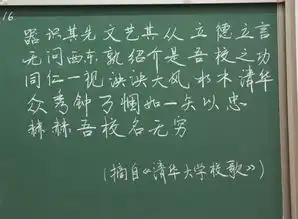 16
器识其先文艺其从立德立言
无问西东孰绍介是吾校之功
同仁一视泱泱大风水木清华
众秀钟万悃如一矢以忠
赫赫吾校名无穷
(摘自《清华大学校歌》)